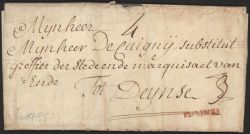 Mijnheer
4
Mijnheer De Cuignij substitut
greffier der stede ende marquisaet van
Ende
Tot Deynse
3
1785